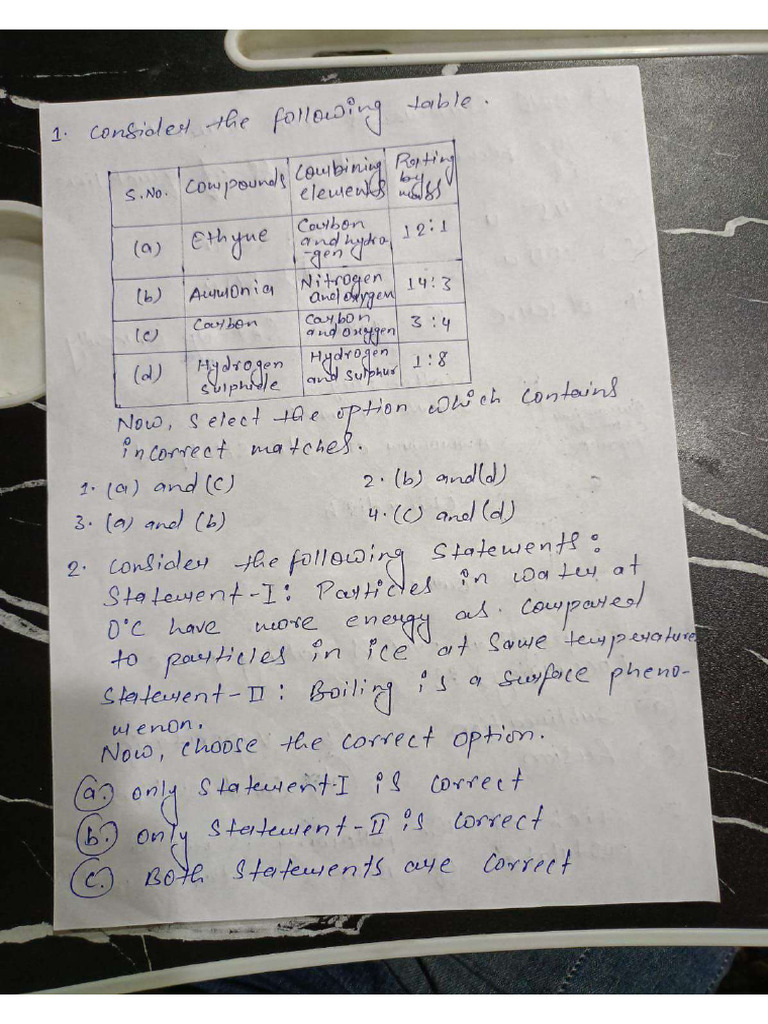 1. Consider the following table.
S.No. Compounds Combining elements Rating by mass
(a) Ethyne Carbon and hydro-gen 12:1
(b) Ammonia Nitrogen and oxygen 14:3
(c) Carbon Carbon and oxygen 3:4
(d) Hydrogen sulphide Hydrogen and sulphur 1:8
Now, select the option which contains
incorrect matches.
1. (a) and (c) 2. (b) and (d)
3. (a) and (b) 4. (c) and (d)
2. Consider the following Statements:
Statement-I: Particles in water at
0°C have more energy as compared
to particles in ice at same temperature
Statement-II: Boiling is a surface pheno-
menon.
Now, choose the correct option.
a. only Statement-I is correct
b. only Statement-II is correct
c. Both statements are correct